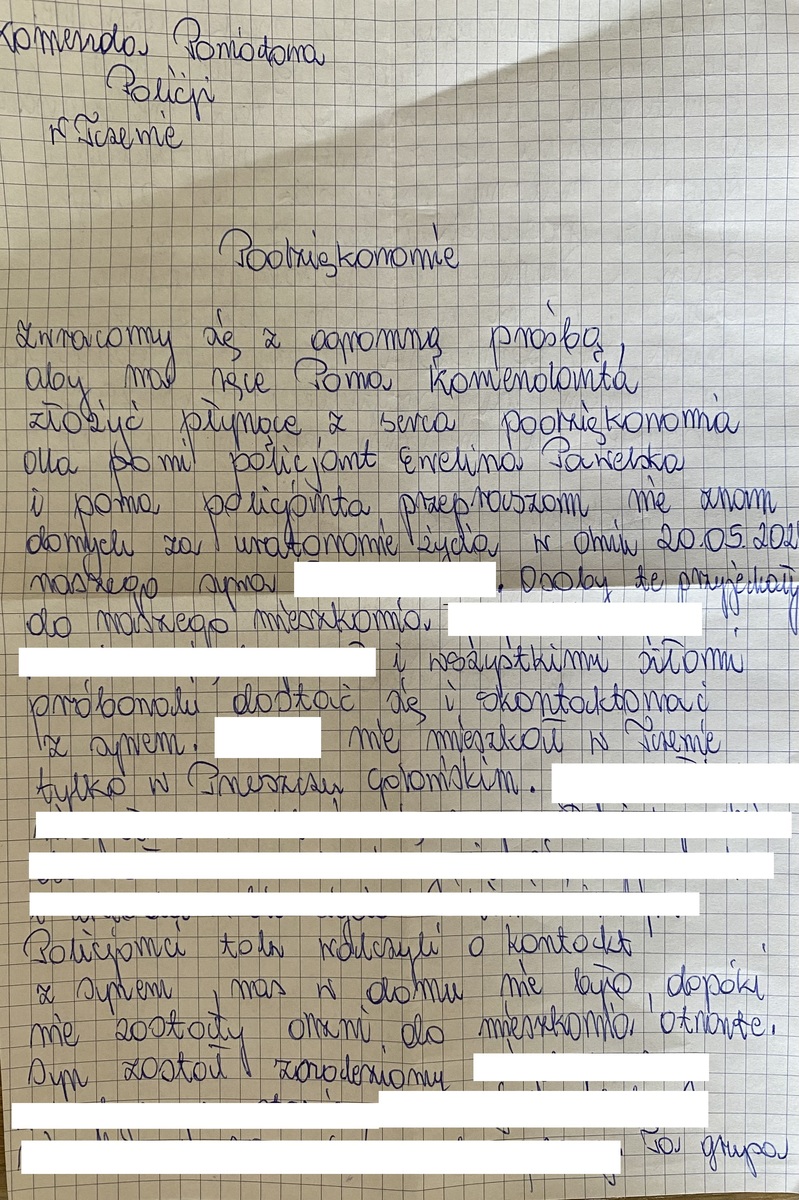 Komenda Powiatowa
Policji
w Tczewie
Podziękowanie
Zwracamy się z ogromną prośbą,
aby na ręce Pana Komendanta
złożyć płynące z serca podziękowania
dla pani policjant Ewelina Pawelska
i pana policjanta przepraszam nie znam
danych za uratowanie życia w dniu 20.05.202
naszego syna . Osoby te przyjechały
do naszego mieszkania.
i wszystkimi siłami
próbowali dostać się i skontaktować
z synem. nie mieszkał w Tczewie
tylko w Pruszczu Gdańskim.
Policjanci tak walczyli o kontakt
z synem, nas w domu nie było, dopóki
nie zostały drzwi do mieszkania otwarte.
Syn został znaleziony
Ta grupa